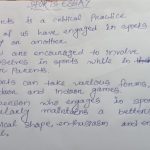 SPORTS ESSAY
Sports is a critical practice
of us have engaged in sports
on another.
are encouraged to involve
themselves in sports while in
Parents.
Sports can take various forms,
outdoor and indoor games.
person who engages in sports
regularly maintains a better
physical shape, enthusiasm and